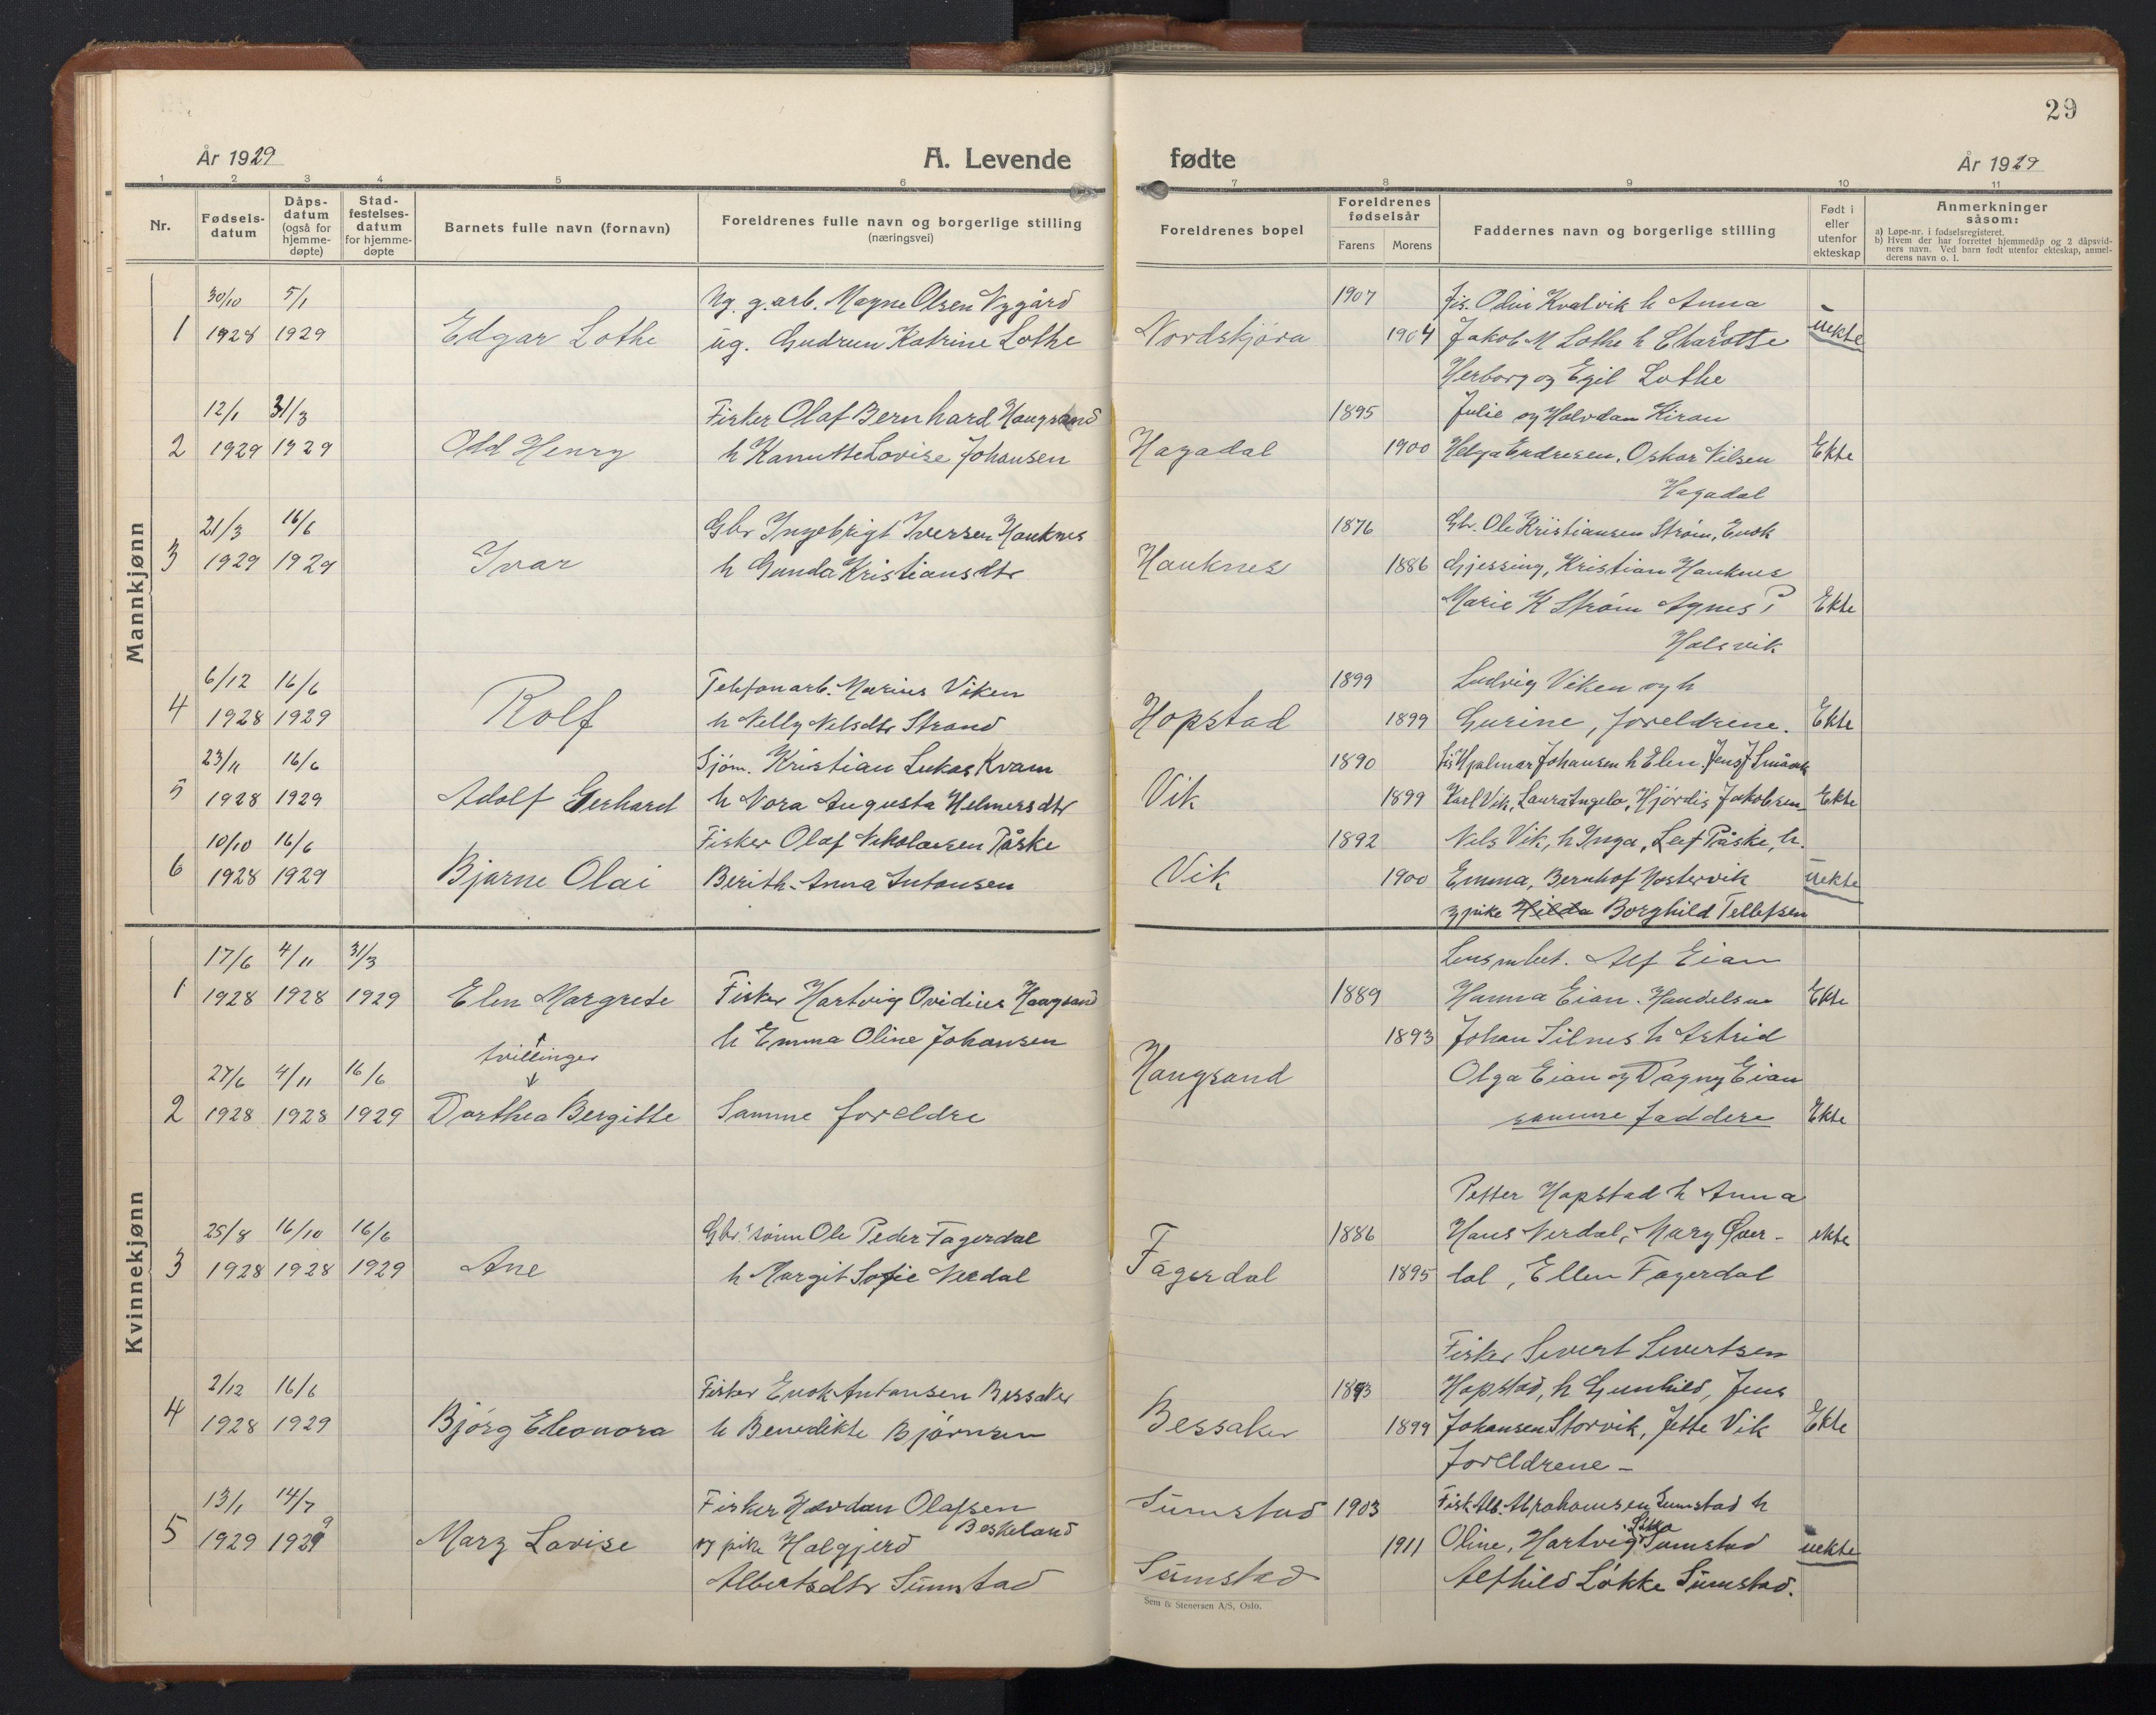 29
År 1929
A. Levende
fødte
År 1929
1 2 3 4 5 6 7 8 9 10 11
Nr.
Fødsels-
datum
Dåps-
datum
(også for
hjemme-
døpte)
Stad-
festelses-
datum
for hjemme-
døpte
Barnets fulle navn (fornavn)
Foreldrenes fulle navn og borgerlige stilling
(næringsvei)
Foreldrenes bopel
Foreldrenes
fødselsår
Farens Morens
Faddernes navn og borgerlige stilling
Født i
eller
utenfor
ekteskap
Anmerkninger
såsom:
a) Løpe-nr. i fødselsregisteret.
b) Hvem der har forrettet hjemmedåp og 2 dåpsvid-
ners navn. Ved barn født utenfor ekteskap, anmel-
derens navn o. l.
Mannkjønn
30/10 5/1 Ug. g.arb. Magne Olsen Nygård 1907 fis. Odin Kvalvik h Anna
1 1928 1929 Edgar Lothe ug. Gudrun Katrine Lothe Nordskjøra 1904 Jakob M Lothe h Charlotte uekte
Herborg og Egil Lothe
12/1 31/3 Fisker Olaf Bernhard Haugsand 1895 Julie og Halvdan Kiran
2 1929 1929 Odd Henry h Kanutte Lovise Johansen Hagadal 1900 Helga Endresen, Oskar Nilsen Ekte
Hagadal
21/3 16/6 Gbr Ingebrigt Iversen Hauknes 1876 Gbr. Ole Kristiansen Strøm, Enok
3 1929 1929 Ivar h Gunda Kristiansdtr Hauknes 1886 Gjessing, Kristian Hauknes
Marie K Strøm Agnes P Ekte
Halsvik
6/12 16/6 Telefonarb. Marius Viken 1899 Ludvig Viken og h
4 1928 1929 Rolf h Nelly Nilsdtr Strand Hopstad 1899 Gurine, foreldrene. Ekte
23/11 16/6 Sjøm. Kristian Lukas Kvam 1890 Fis Hjalmar Johansen h Elen, Jens J Småvik
5 1928 1929 Adolf Gerhard h Nora Augusta Helmersdtr Vik 1899 Karl Vik, Laura Angelo, Hjørdis Jakobsen Ekte
10/10 16/6 Fisker Olaf Nikolaisen Påske 1892 Nels Vik, h Inga, Leif Påske, h.
6 1928 1929 Bjarne Olai Berith Anna Antonsen Vik 1900 Emma, Bernhof Nostervik uekte
og pike Hilda Borghild Tellefsen
Kvinnekjønn
17/6 4/11 31/3 Lensmbet. Alf Eian
1 1928 1928 1929 Elen Margrete Fisker Hartvig Ovidius Haugsand 1889 Hanna Eian. Handelsm Ekte
h Emma Oline Johansen 1893 Johan Silnes h Astrid
tvillinger
27/6 4/11 16/6 Haugsand Olga Eian og Dagny Eian
2 1928 1928 1929 Dorthea Bergitte Samme foreldre samme faddere Ekte
Petter Hopstad h Anna
25/8 16/10 16/6 Gbr. sønn Ole Peder Fagerdal 1886 Hans Nerdal, Mary Over- ekte
3 1928 1928 1929 Ane h Margit Sofie Nerdal Fagerdal 1895 dal, Ellen Fagerdal
Fisker Sivert Sivertsen
2/12 16/6 Fisker Enok Antonsen Bessaker 1893 Hopstad, h Gunhild, Jens
4 1928 1929 Bjørg Eleonora h Benedikte Bjørnsen Bessaker 1899 Johansen Storvik, Jette Vik Ekte
foreldrene -
13/1 14/7 Fisker Havdan Olafsen Sumstad 1903 Fisk Alb. Abrahamsen Sumstad h
Beskeland
5 1929 1929 Mary Lovise og pike Halgjerd 1911 Oline, Hartvig Sumstad uekte
Albertsdtr Sumstad Sumstad Alfhild Løkke Sumstad.
Sem & Stenersen A/S, Oslo.